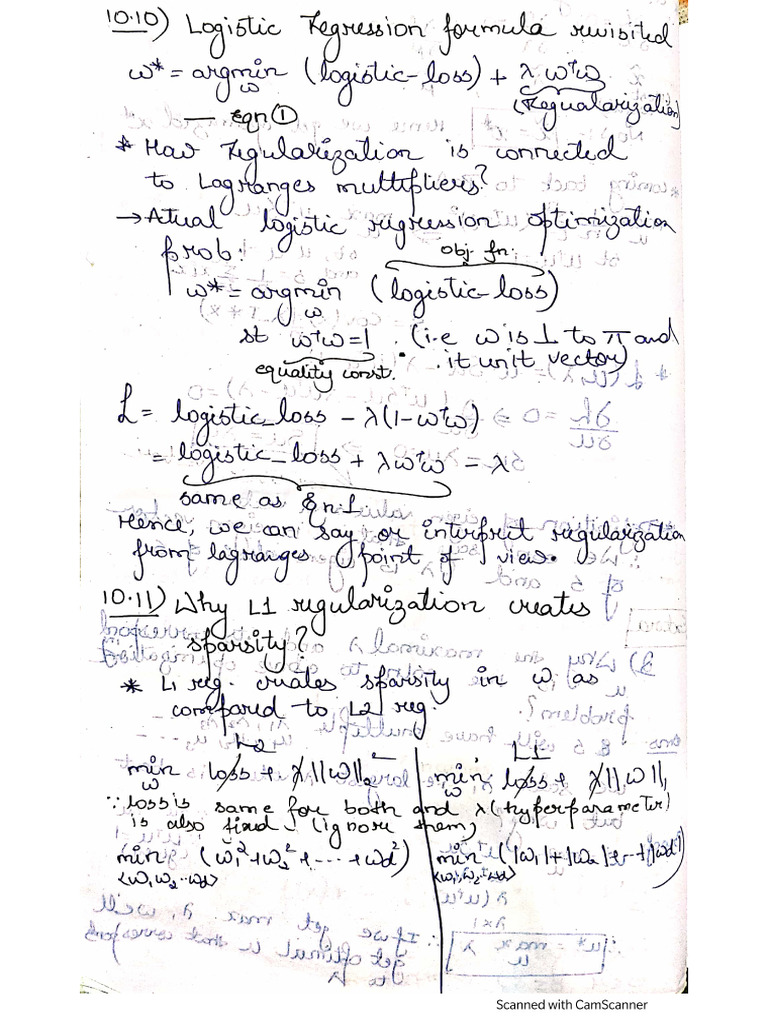 10.10) Logistic Regression formula revisited
w* = argmin (logistic-loss) + λ wᵀw
w
(Regualarization)
— Eqn ①
* How Regularization is connected
to Lagranges multipliers?
→ Atual logistic regression optimization
prob:
obj. fn.
w* = argmin (logistic-loss)
w
st wᵀw = 1 . (i.e w is ⊥ to π and
it unit vector)
equality const.
L = logistic_loss - λ(1-wᵀw)
= logistic_loss + λwᵀw = λ
same as Eqn.1
Hence, we can say or interpret regularization
from lagranges point of view.
10.11) Why L1 regularization creates
sparsity?
* L1 reg. creates sparsity in w as
compared to L2 reg.
L2
min loss + λ||w||₂²
w
L1
min loss + λ||w||₁
w
∵ loss is same for both and λ (hyperparameter)
is also fixed (ignore them)
min (w₁² + w₂² + ... + wd²)
<w₁, w₂ ... wd>
min (|w₁| + |w₂| + ... + |wd|)
<w₁, w₂ ... wd>
Scanned with CamScanner